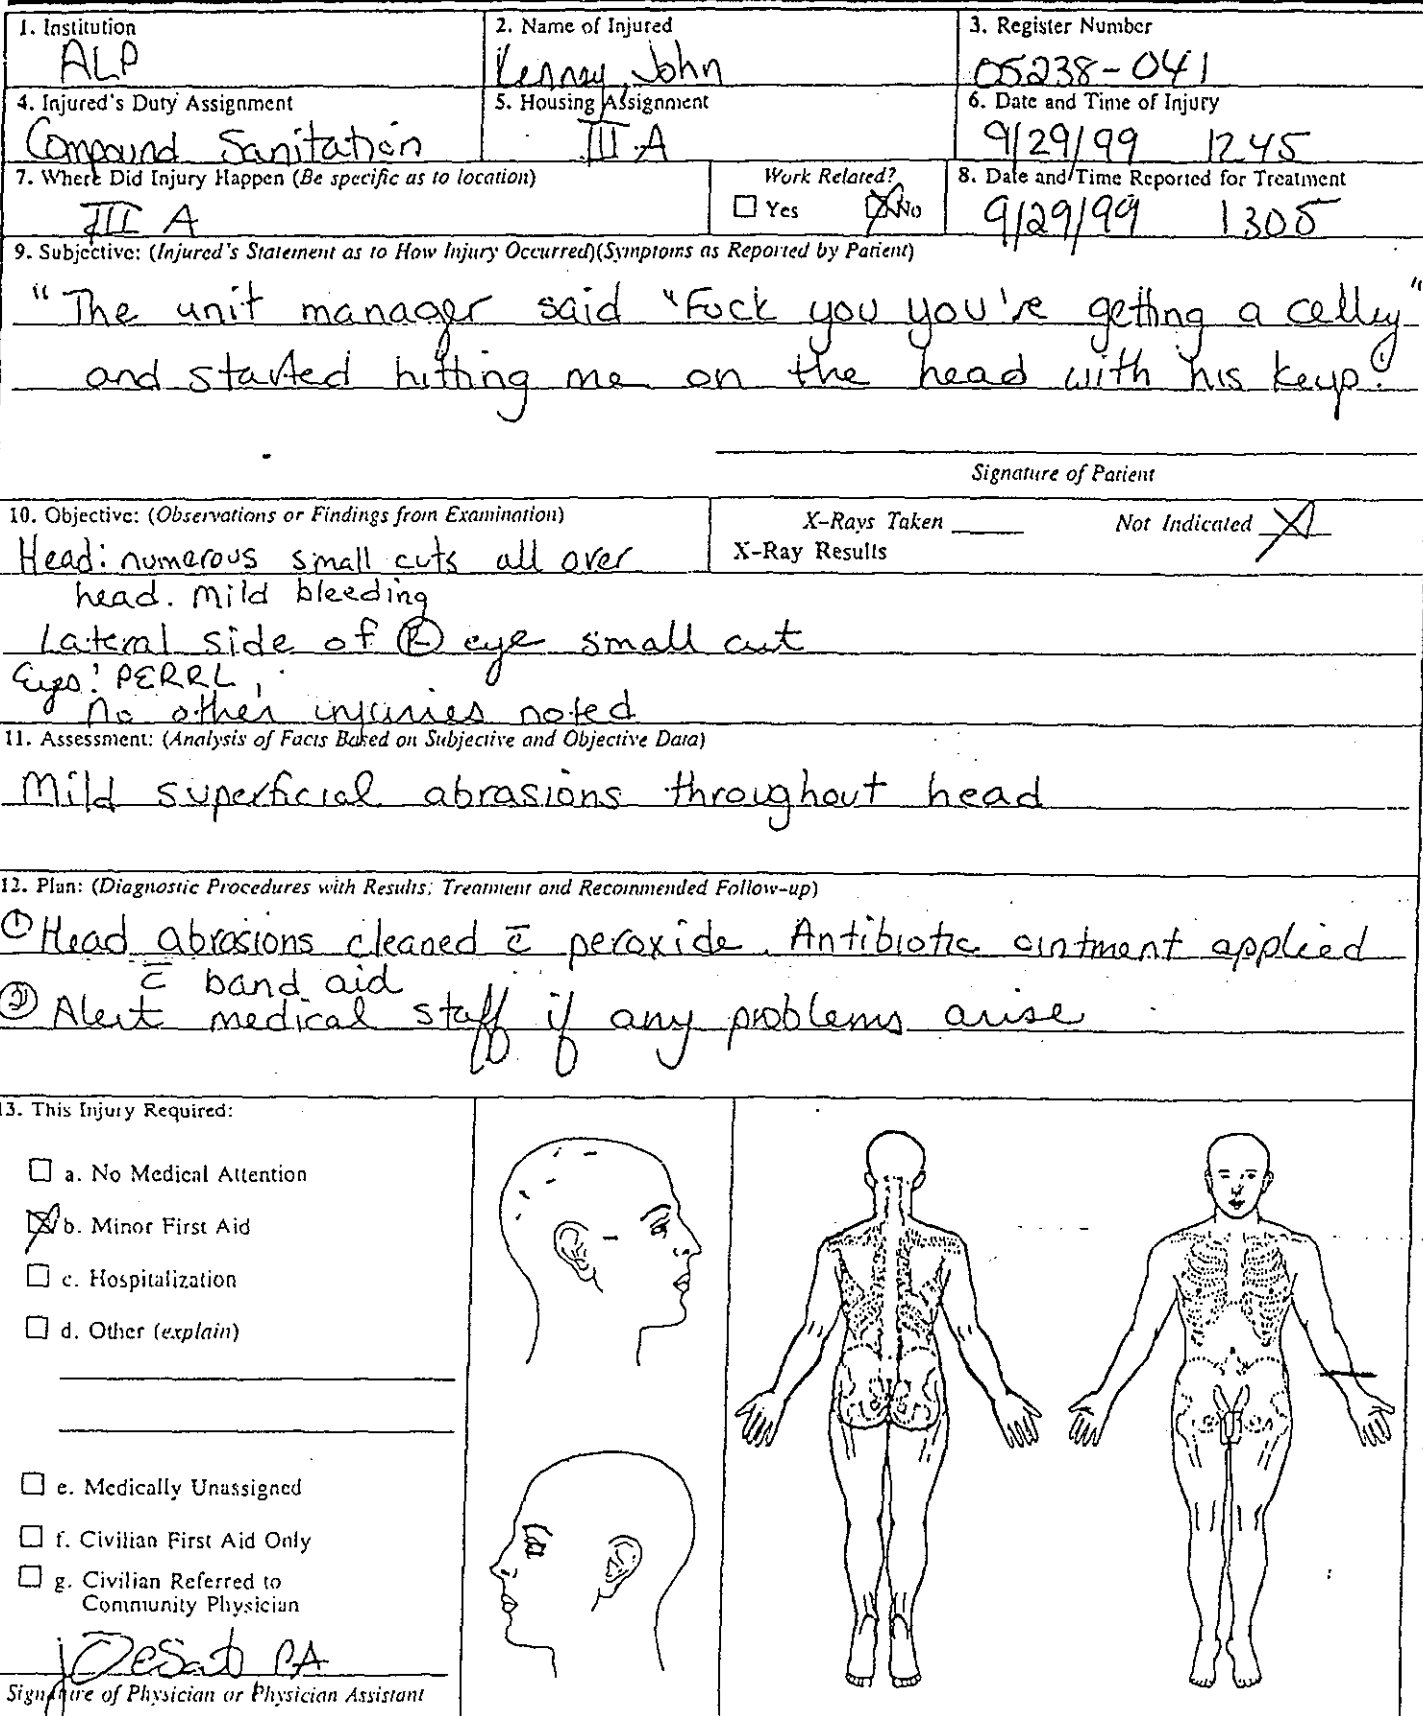 1. Institution
ALP
2. Name of Injured
Kenney, John
3. Register Number
05238-041
4. Injured's Duty Assignment
Compound Sanitation
5. Housing Assignment
III A
6. Date and Time of Injury
9/29/99 1245
7. Where Did Injury Happen (Be specific as to location)
III A
Work Related?
Yes No
8. Date and Time Reported for Treatment
9/29/99 1305
9. Subjective: (Injured's Statement as to How Injury Occurred)(Symptoms as Reported by Patient)
"The unit manager said "Fuck you you're getting a celly"
and started hitting me on the head with his keys."
Signature of Patient
10. Objective: (Observations or Findings from Examination)
X-Rays Taken Not Indicated X
X-Ray Results
Head: numerous small cuts all over
head. Mild bleeding
Lateral side of Ⓡ eye small cut
Eyes: PERRL,
no other injuries noted
11. Assessment: (Analysis of Facts Based on Subjective and Objective Data)
Mild superficial abrasions throughout head
12. Plan: (Diagnostic Procedures with Results; Treatment and Recommended Follow-up)
① Head abrasions cleaned c̄ peroxide. Antibiotic ointment applied
c̄ band aid
② Alert medical staff if any problems arise
13. This Injury Required:
a. No Medical Attention
b. Minor First Aid
c. Hospitalization
d. Other (explain)
e. Medically Unassigned
f. Civilian First Aid Only
g. Civilian Referred to
Community Physician
PA
Signature of Physician or Physician Assistant